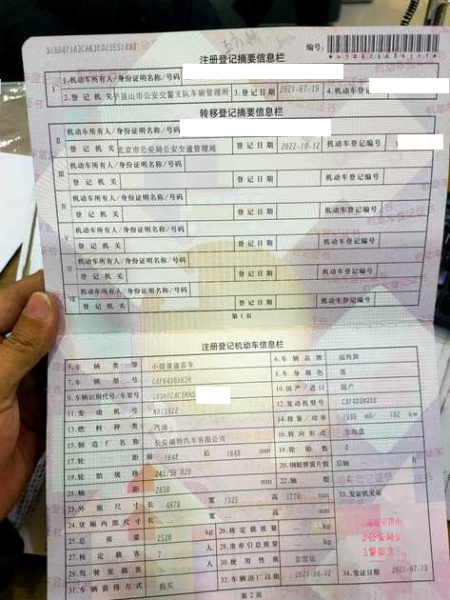 编号：
注册登记摘要信息栏
Ⅰ
1.机动车所有人/身份证明名称/号码
2.登记机关 平顶山市公安交警支队车辆管理所 3.登记日期 2021-07-19 4.机动车登记编号
转移登记摘要信息栏
Ⅱ
机动车所有人/身份证明名称/号码
登记机关 北京市公安局公安交通管理局 登记日期 2022-10-12 机动车登记编号
Ⅲ
机动车所有人/身份证明名称/号码
登记机关 登记日期 机动车登记编号
Ⅳ
机动车所有人/身份证明名称/号码
登记机关 登记日期 机动车登记编号
Ⅴ
机动车所有人/身份证明名称/号码
登记机关 登记日期 机动车登记编号
Ⅵ
机动车所有人/身份证明名称/号码
登记机关 登记日期 机动车登记编号
Ⅶ
机动车所有人/身份证明名称/号码
登记机关 登记日期 机动车登记编号
第1页
注册登记机动车信息栏
5.车辆类型 小型普通客车 6.车辆品牌 福特牌
7.车辆型号 8.车身颜色 黑
9.车辆识别代号/车架号 10.国产/进口 国产
11.发动机号 12.发动机型号
13.燃料种类 汽油 14.排量/功率 ml/ kw
15.制造厂名称 长安福特汽车有限公司 16.转向形式 方向盘
17.轮距 前 1648 后 1648 mm 18.轮胎数 4
19.轮胎规格 20.钢板弹簧片数 后轴
21.轴距 2850 22.轴数 2
23.外廓尺寸 长 4878 宽 1925 高 1770 33.发证机关章
24.货厢内部尺寸 长 宽 高
25.总质量 2520 kg 26.核定载质量 kg
27.核定载客 7 人 28.准牵引总质量 kg
29.驾驶室载客 人 30.使用性质 非营运
31.车辆获得方式 购买 32.车辆出厂日期 2021-06-12 34.发证日期 2021-07-19
第2页